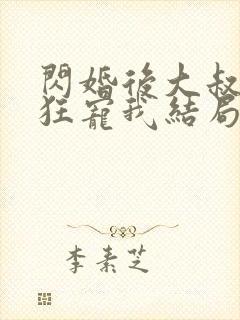 閃婚後大叔
狂寵我結局
李素芝